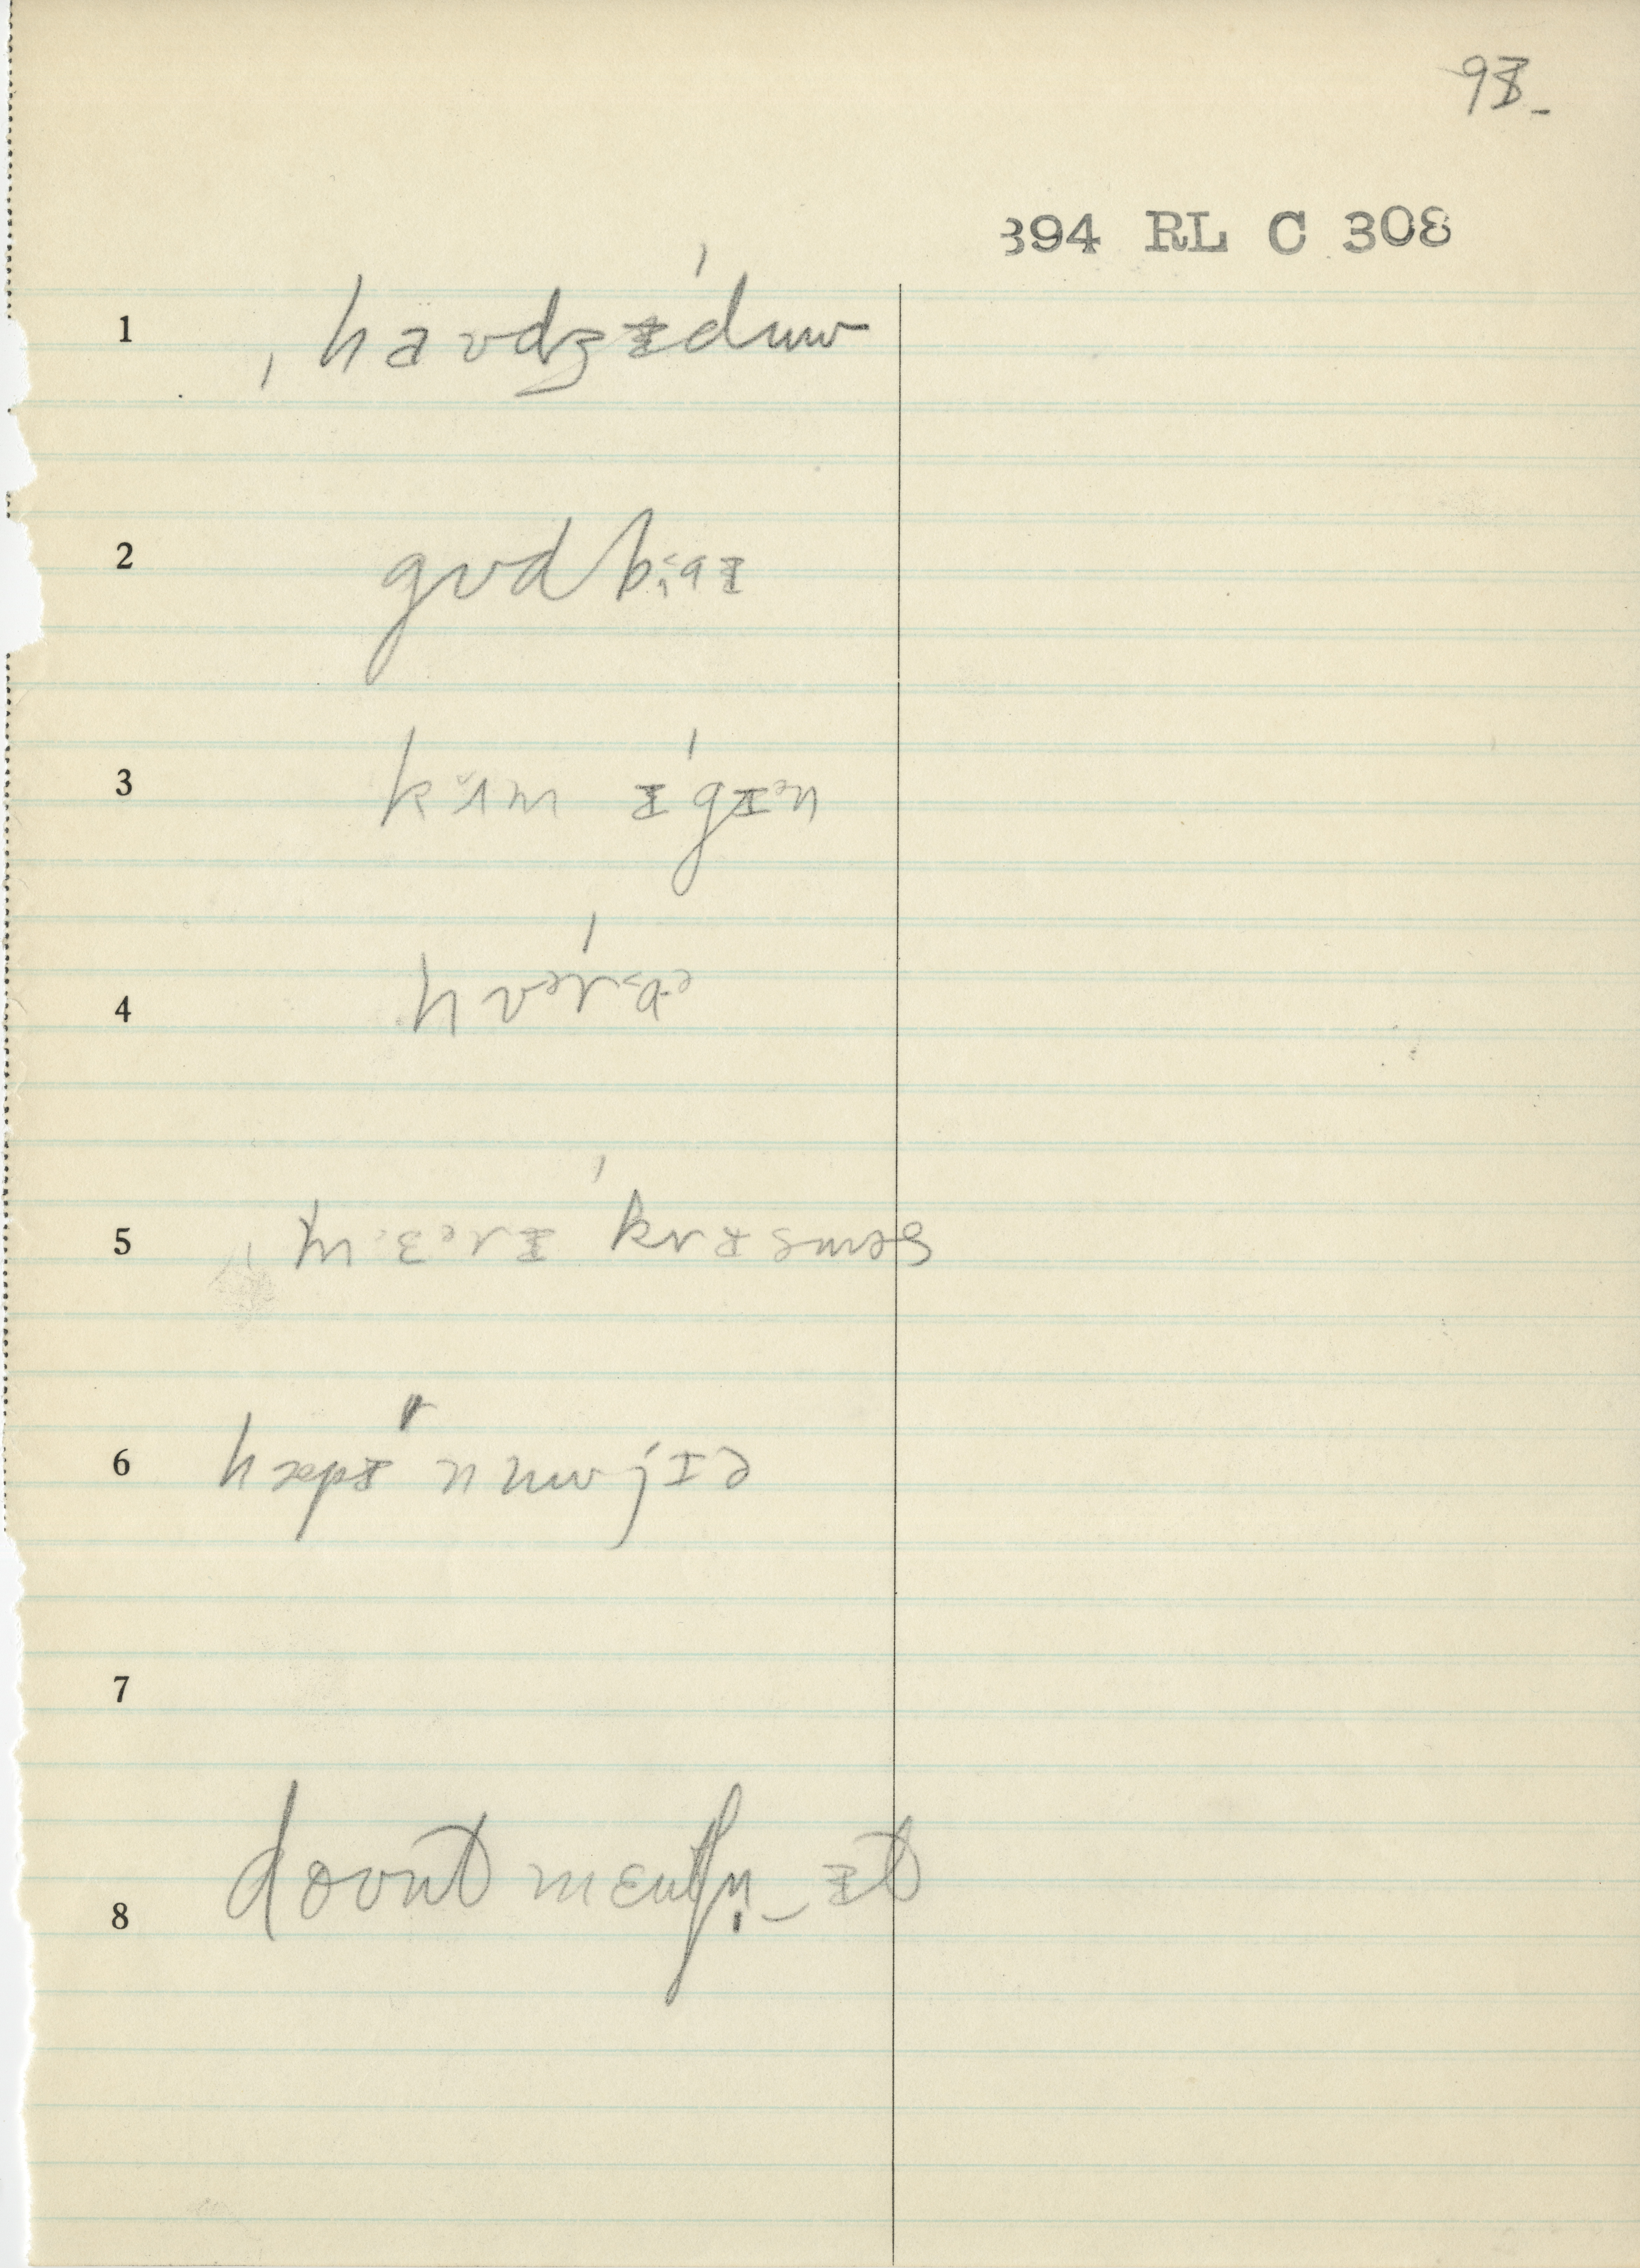 93
394 RL C 308
1 ˌhaʊdᵻˈduw
2 gʊd baᵻ
3 kʌm ᵻˈgᵻən
4 hʊəˈrɑə
5 ˌmɛərᵻ ˈkrᵻsməs
6 hæpᵻ nuwjɪə
7
8 doʊnt mɛnʃn̩‿ᵻt